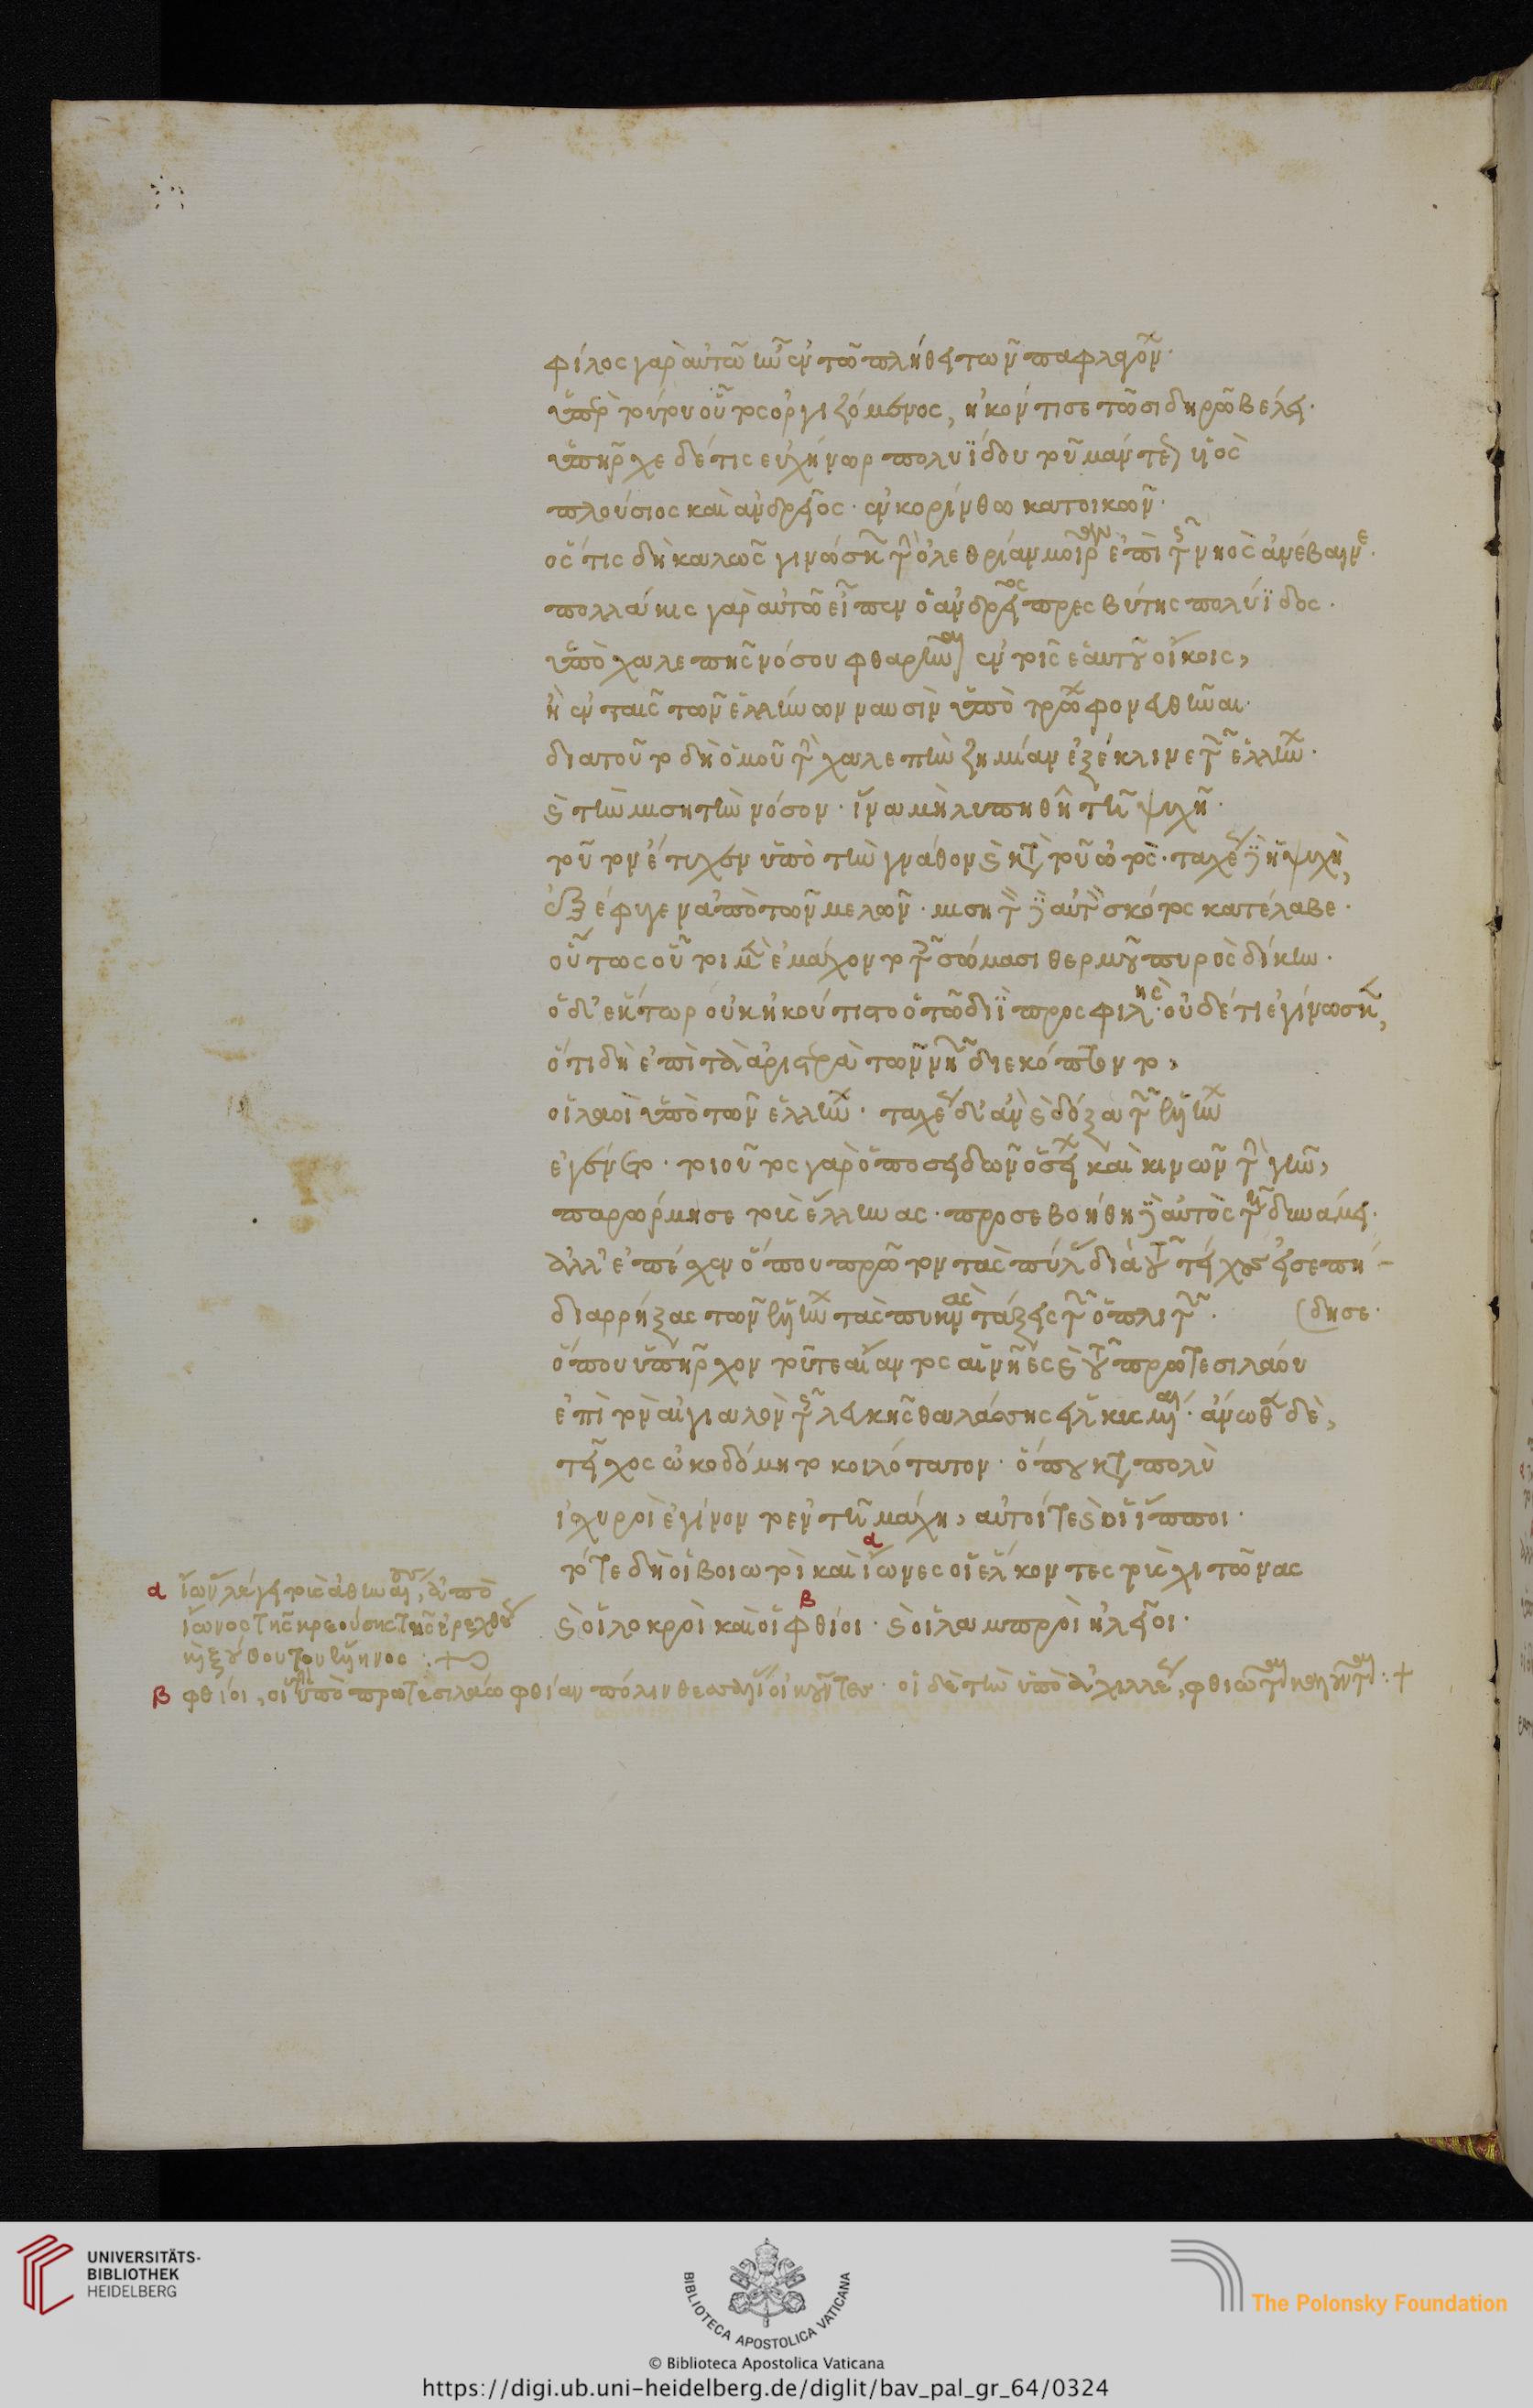 φίλος γὰρ αὐτῶ ἦν ἐν τῶ πλήθει τῶν παφλαγόνων·
ὑπὲρ τούτου οὗτος ὀργιζόμενος, ἠκόντισε τῶ σιδηρῶ βέλει·
ὑπῆρχε δέ τις εὐχήνωρ πολυΐδου τοῦ μάντεως υἱὸς
πλούσιος καὶ ἀνδρεῖος· ἐν κορίνθω κατοικῶν·
ὅς τις δὴ καλῶς γινώσκων τὴν ὀλεθρίαν μοῖραν ἐπὶ τῆς νηὸς ἀνέβαινε·
πολλάκις γὰρ αὐτῶ εἶπεν ὁ ἀνδρεῖος πρεσβύτης πολύϊδος·
ὑπὸ χαλεπῆς νόσου φθαρῆναι ἐν τοῖς ἑαυτοῦ οἴκοις,
ἢ ἐν ταῖς τῶν ἑλλήνων ναυσὶν ὑπὸ τρώων φονευθῆναι·
διατοῦτο δὴ ὁμοῦ τὴν χαλεπὴν ζημίαν ἐξέκλινε τῶν ἑλλήνων·
καὶ τὴν μισητὴν νόσον· ἵνα μὴ λυπηθῆ τῆ ψυχῆ·
τοῦτον ἔτυχεν ὑπὸ τὴν γνάθον καὶ κατὰ τοῦ ὠτός· ταχέως δὲ ἡ ψυχὴ,
ἐξέφυγεν ἀπὸ τῶν μελῶν· μισητὸς δὲ αὐτὸν σκότος κατέλαβε·
οὕτως οὗτοι μὲν ἐμάχοντο τοῖς σώμασι θερμοῦ πυρὸς δίκην·
ὁ δὲ ἕκτωρ οὐκ ἠκούτιστο ὁ τῶ διῒ προσφιλὴς· οὐδέ τι ἐγίνωσκεν,
ὅτι δὴ ἐπὶ τὰ ἀριστερὰ τῶν νηῶν διεκόπτοντο,
οἱ λαοὶ ὑπὸ τῶν ἑλλήνων· ταχέως δ' ἂν καὶ δόξα τῶν ἑλλήνων
ἐγένετο· τοιοῦτος γὰρ ὁ ποσειδῶν ὁ σείων καὶ κινῶν τὴν γῆν,
παρώρμησε τοὺς ἕλληνας· προσεβοήθη δὲ αὐτὸς τῆ δυνάμει·
ἀλλ' ἐπέχεν ὅπου πρῶτον τὰς πύλας διὰ τοῦ τείχους εἰσεπή-
διαρρήξας τῶν ἑλλήνων τὰς πυκνὰς τάξεις τῶν ὁπλιτῶν· (δησε·
ὅπου ὑπῆρχον τοῦ τε αἴαντος αἱ νῆες καὶ τοῦ πρωτεσιλάου
ἐπὶ τὸν αἰγιαλὸν τῆς λευκῆς θαλάσσης εἱλκυσμέναι· ἄνωθεν δὲ,
τεῖχος ὠκοδόμητο κοιλότατον· ὅπου κατὰ πολὺ
ἰσχυροὶ ἐγίνοντο ἐν τῆ μάχη, αὐτοί τε καὶ οἱ ἵπποι·
τότε δὴ οἱ βοιωτοὶ καὶ ἴωνες οἱ ἕλκοντες τοὺς χιτῶνας
καὶ οἱ λοκροὶ καὶ οἱ φθίοι· καὶ οἱ λαμπροὶ ἠλεῖοι·
α ἴωνας λέγει τοὺς ἀθηναίους, ἀπὸ
ἴωνος τῆς κρεούσης τῆς ἐρεχθέως
καὶ ξούθου τοῦ ἕλληνος :
β φθίοι, οἱ ὑπὸ πρωτεσιλάω φθίαν πόλιν θεσσαλίας οἰκοῦντες· οἱ δὲ τὴν ὑπὸ ἀχιλλέως, φθιῶται καλοῦνται : +
UNIVERSITÄTS-
BIBLIOTHEK
HEIDELBERG
BIBLIOTECA APOSTOLICA VATICANA
The Polonsky Foundation
© Biblioteca Apostolica Vaticana
https://digi.ub.uni-heidelberg.de/diglit/bav_pal_gr_64/0324